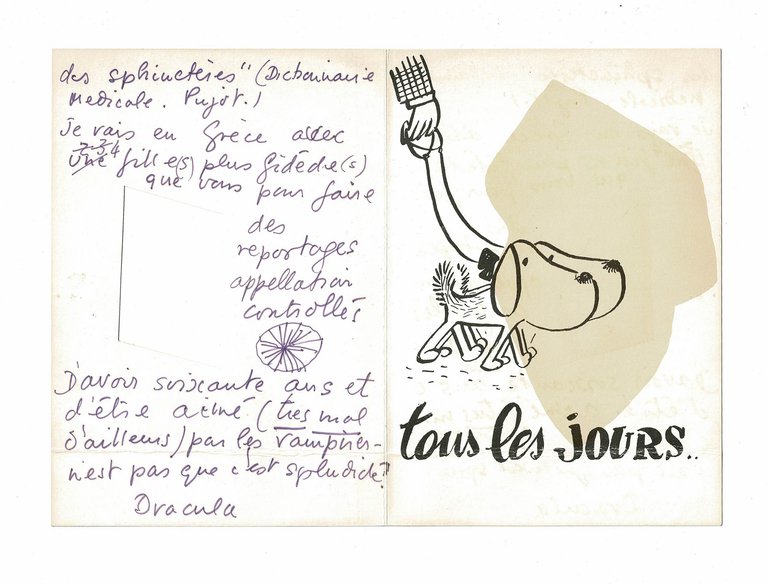 des sphinctères" (Dictionnaire
Medicale. Pujot.)
Je vais en Grèce avec
une 2 3 4 fille(s) plus fidèle(s)
que vous pour faire
des
reportages
appellation
controllés
D'avoir soixante ans et
d'être aimé (tres mal
d'ailleurs) par les vampires-
n'est pas que c'est splendide?
Dracula
tous les JOURS..